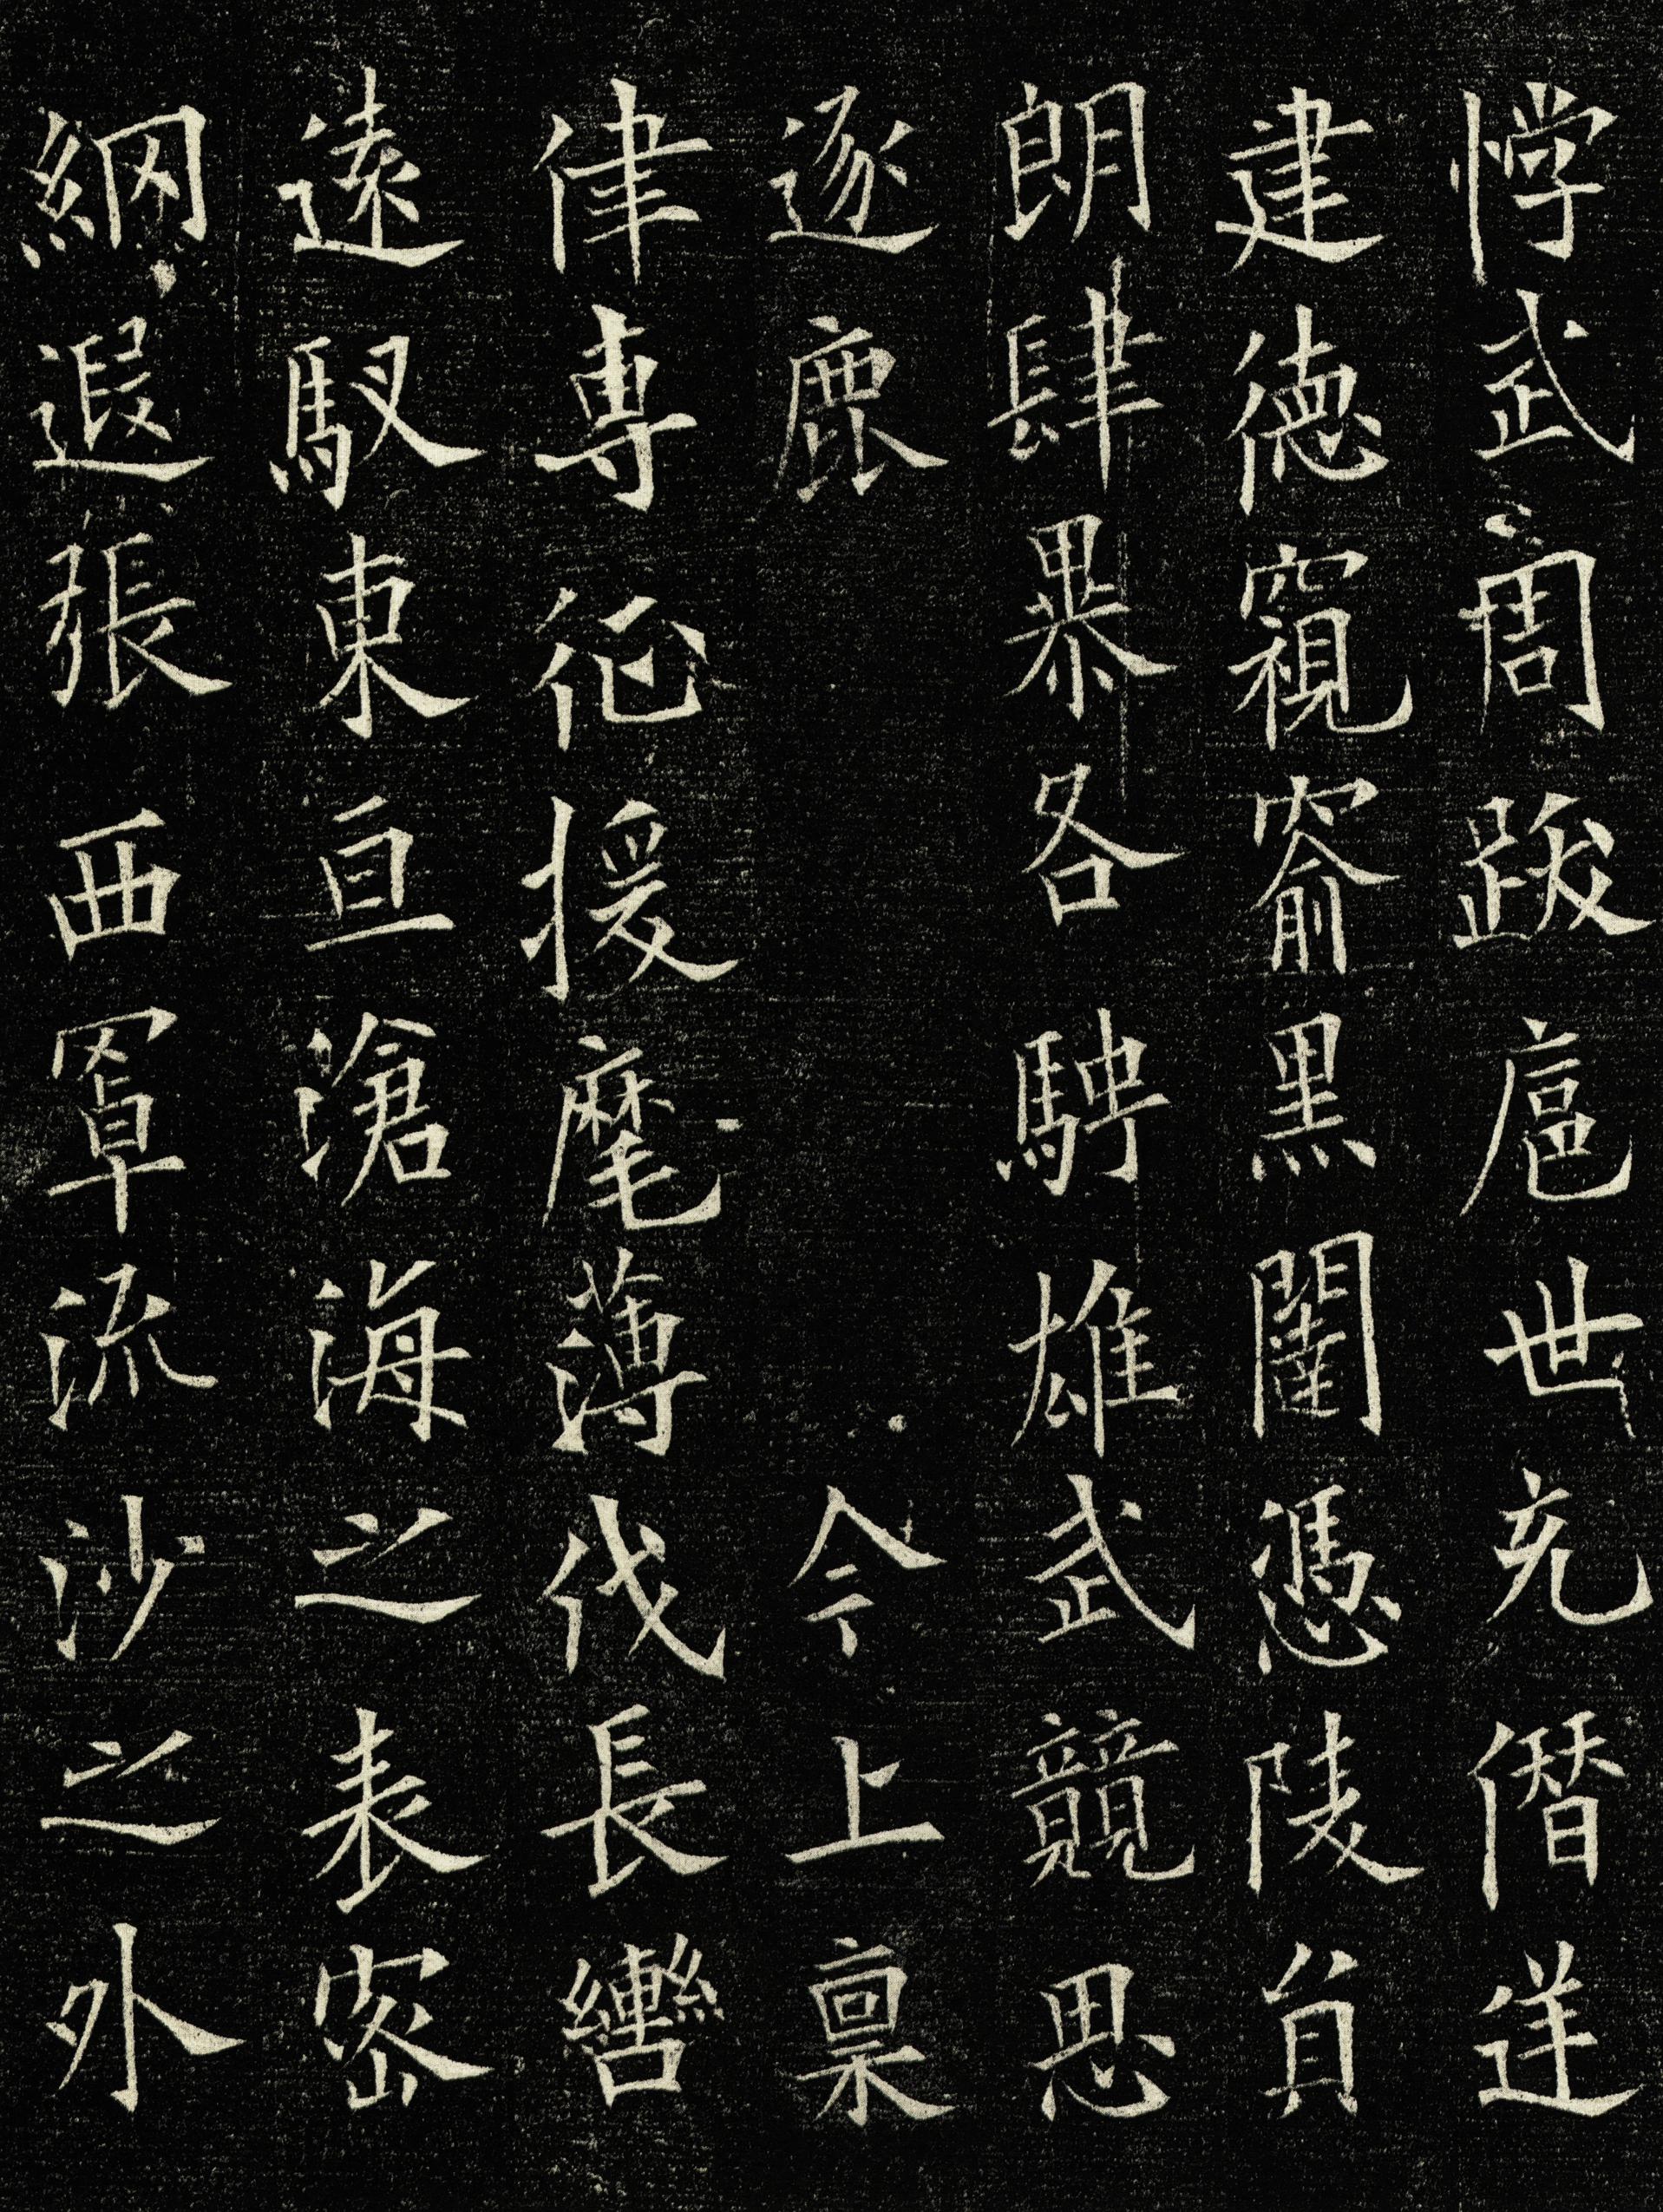 悖武周跋扈世充僭逆
建德窺窬黑闥憑陵負
朗肆暴各騁雄武競思
逐鹿　今上稟
律專征援麾薄伐長轡
遠馭東亘滄海之表密
網遐張西罩流沙之外